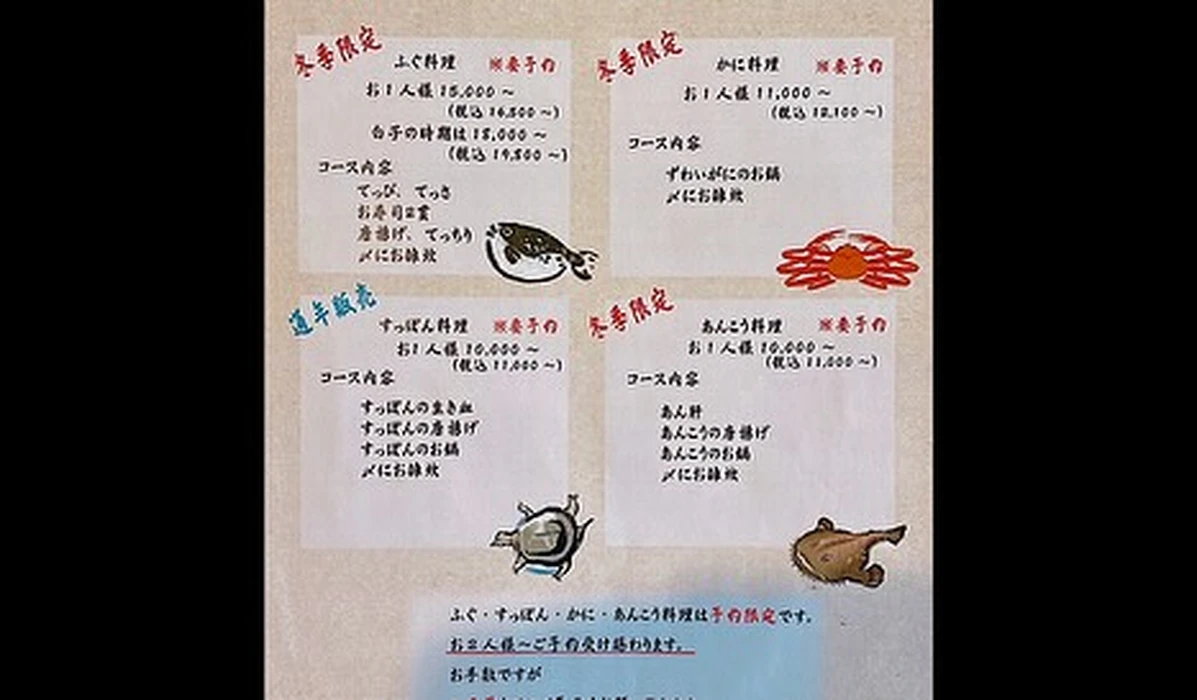 冬季限定
ふぐ料理 ※要予約
お1人様 15,000 ～
(税込 16,500 ～)
白子の時期は 18,000 ～
(税込 19,800 ～)
コース内容
てっぴ、てっさ
お寿司2貫
唐揚げ、てっちり
〆にお雑炊
冬季限定
かに料理 ※要予約
お1人様 11,000 ～
(税込 12,100 ～)
コース内容
ずわいがにのお鍋
〆にお雑炊
通年販売
すっぽん料理 ※要予約
お1人様 10,000 ～
(税込 11,000 ～)
コース内容
すっぽんの生き血
すっぽんの唐揚げ
すっぽんのお鍋
〆にお雑炊
冬季限定
あんこう料理 ※要予約
お1人様 10,000 ～
(税込 11,000 ～)
コース内容
あん肝
あんこうの唐揚げ
あんこうのお鍋
〆にお雑炊
ふぐ・すっぽん・かに・あんこう料理は予約限定です。
お2人様～ご予約受け賜わります。
お手数ですが